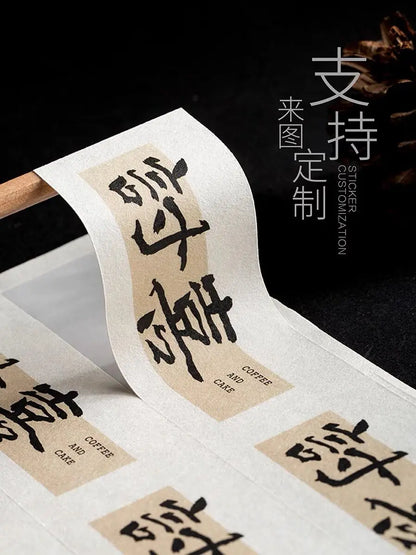 支持
来图定制
STICKER
CUSTOMIZATION
討喜
COFFEE
AND
CAKE
喜
COFFEE
AND
CAKE
討
討